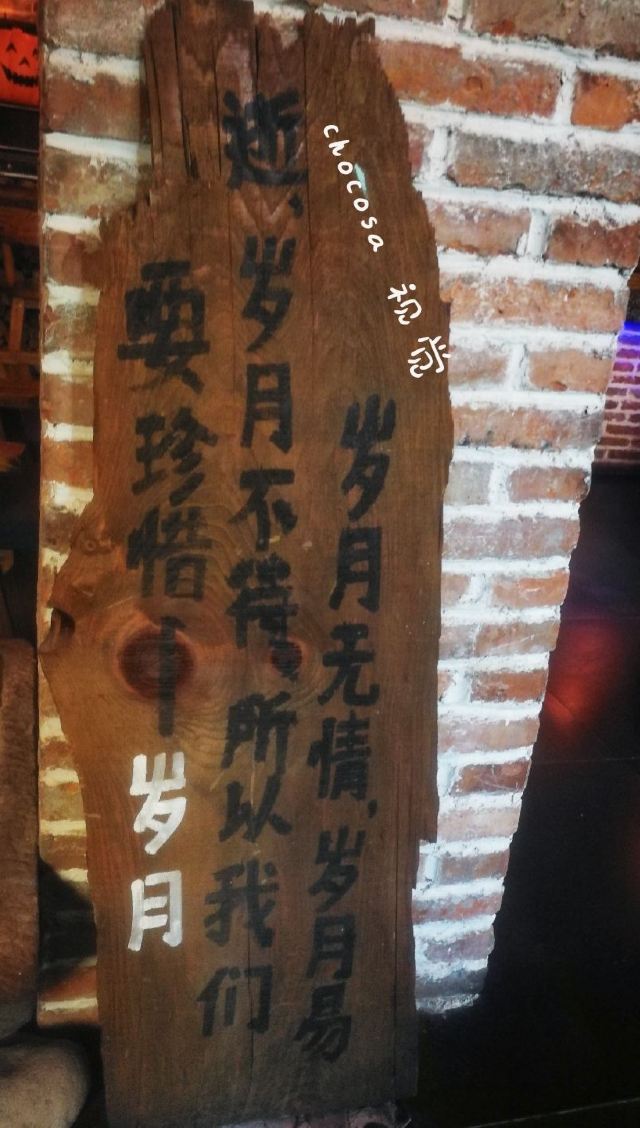 岁月无情，岁月易
逝、岁月不待、所以我们
要珍惜—岁月
chocosa 视觉